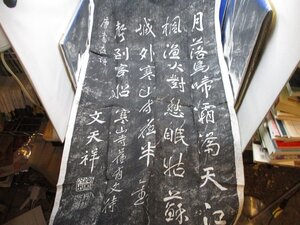 月落烏啼霜滿天江
楓漁火對愁眠姑蘇
城外寒山寺夜半
到客船 寒山寺舊有文待
文天祥